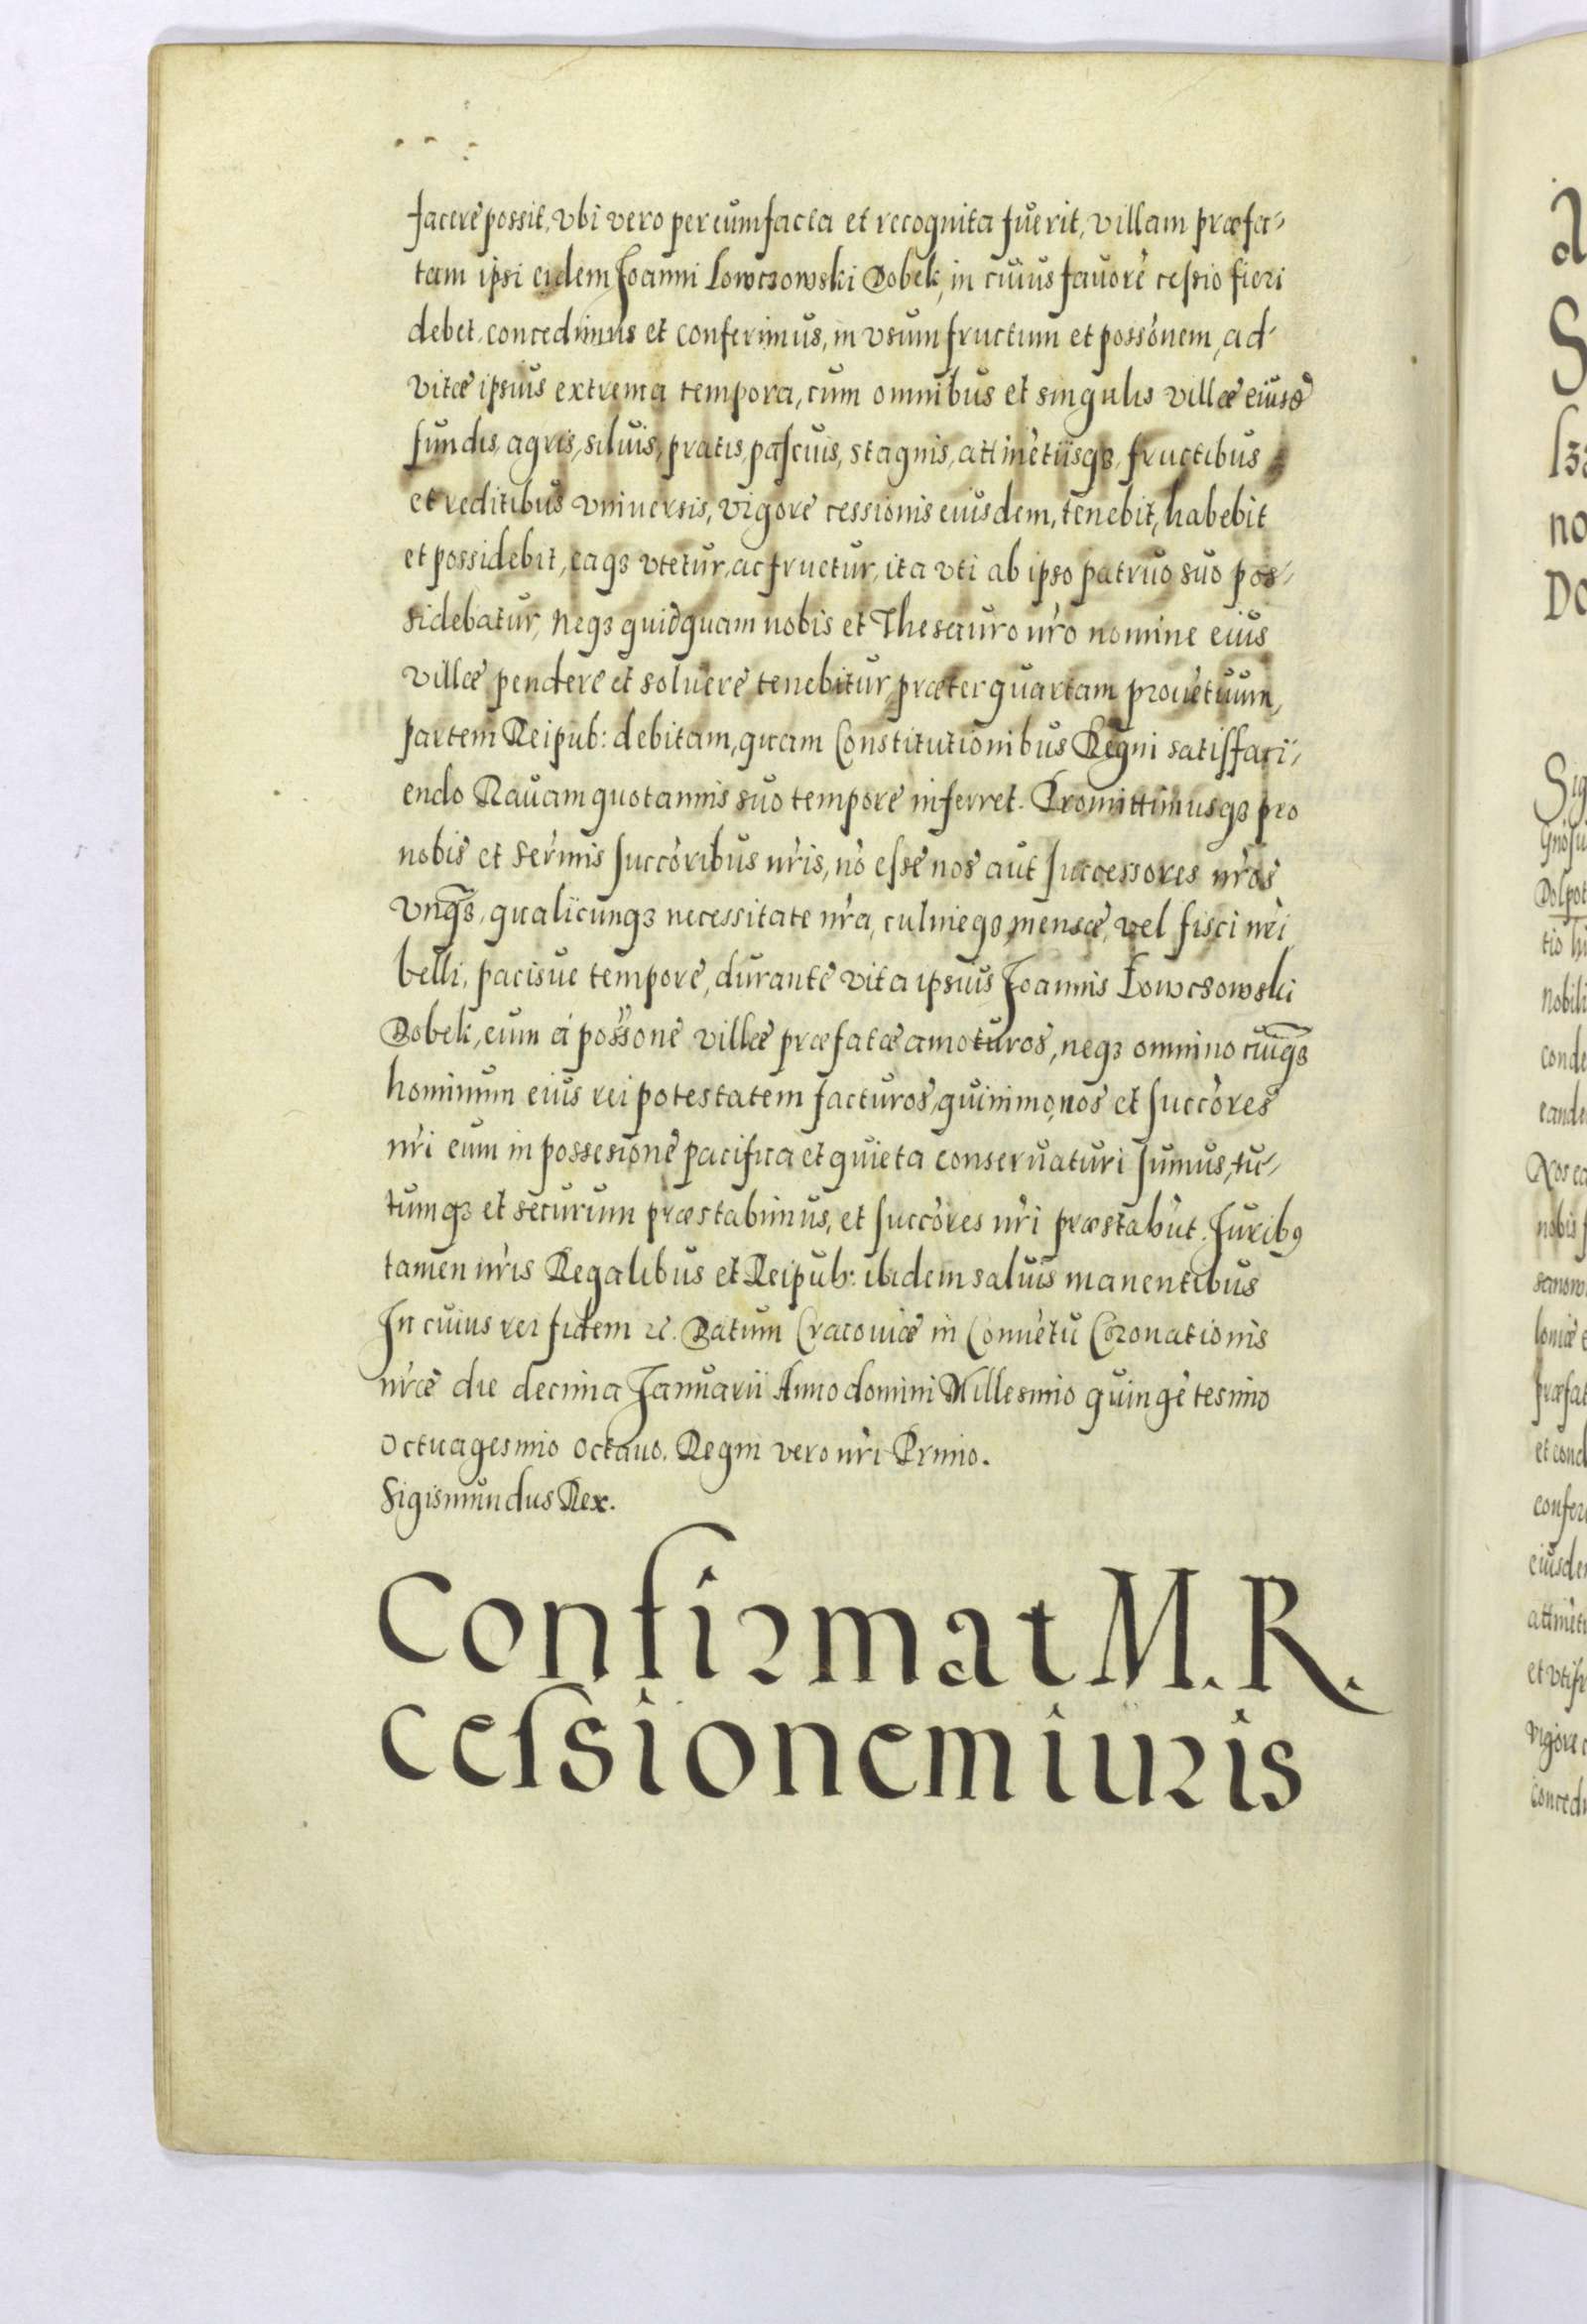 facere possit, vbi vero per eum facta et recognita fuerit, villam præfa-
tam ipsi eidem Joanni Lowczowski Dobek, in cuius fauore cessio fieri
debet, concedimus et conferimus, in vsumfructum et possõnem, ad
vitæ ipsius extrema tempora, cum omnibus et singulis villæ eiusd
fundis, agris, siluis, pratis, pascuis, stagnis, attinẽtiisq3, fructibus
et reditibus vniuersis, vigore cessionis eiusdem, tenebit, habebit
et possidebit, eaq3 vtetur, ac fruetur, ita vti ab ipso patruo suo pos-
sidebatur, neq3 quidquam nobis et Thesauro nr̃o nomine eius
villæ pendere et soluere tenebitur, præter quartam prouẽtuum,
partem Reipub: debitam, quam Constitutionibus Regni satisfaci-
endo Rauam quotannis suo tempore inferret. Promittimusq3 pro
nobis et Serm̃is succõribus nr̃is, nõ esse nos aut successores nr̃os
vnq̃3, qualicunq3 necessitate nr̃a, culmieq3, mensæ, vel fisci nr̃i
belli, pacisue tempore, durante vita ipsius Joannis Lowcsowski
Dobek, eum á possõne villæ præfatæ amoturos, neq3 omnino cuiq̃3
hominum eius rei potestatem facturos, quinimo, nos et succõres
nr̃i eum in possesione pacifica et quieta conseruaturi sumus, tu-
tumq3 et securum præstabimus, et succõres nr̃i præstabũt. Jurib9
tamen nr̃is Regalibus et Reipub: ibidem saluis manentibus
In cuius rei fidem ꝛc. Datum Cracouiæ in Conuẽtu Coronationis
nr̃æ die decima Januarii Anno domini Millesimo quingẽtesimo
octuagesimo octauo. Regni vero nr̃i Primo.
Sigismundus Rex.
Confirmat M. R.
cessionem iuris